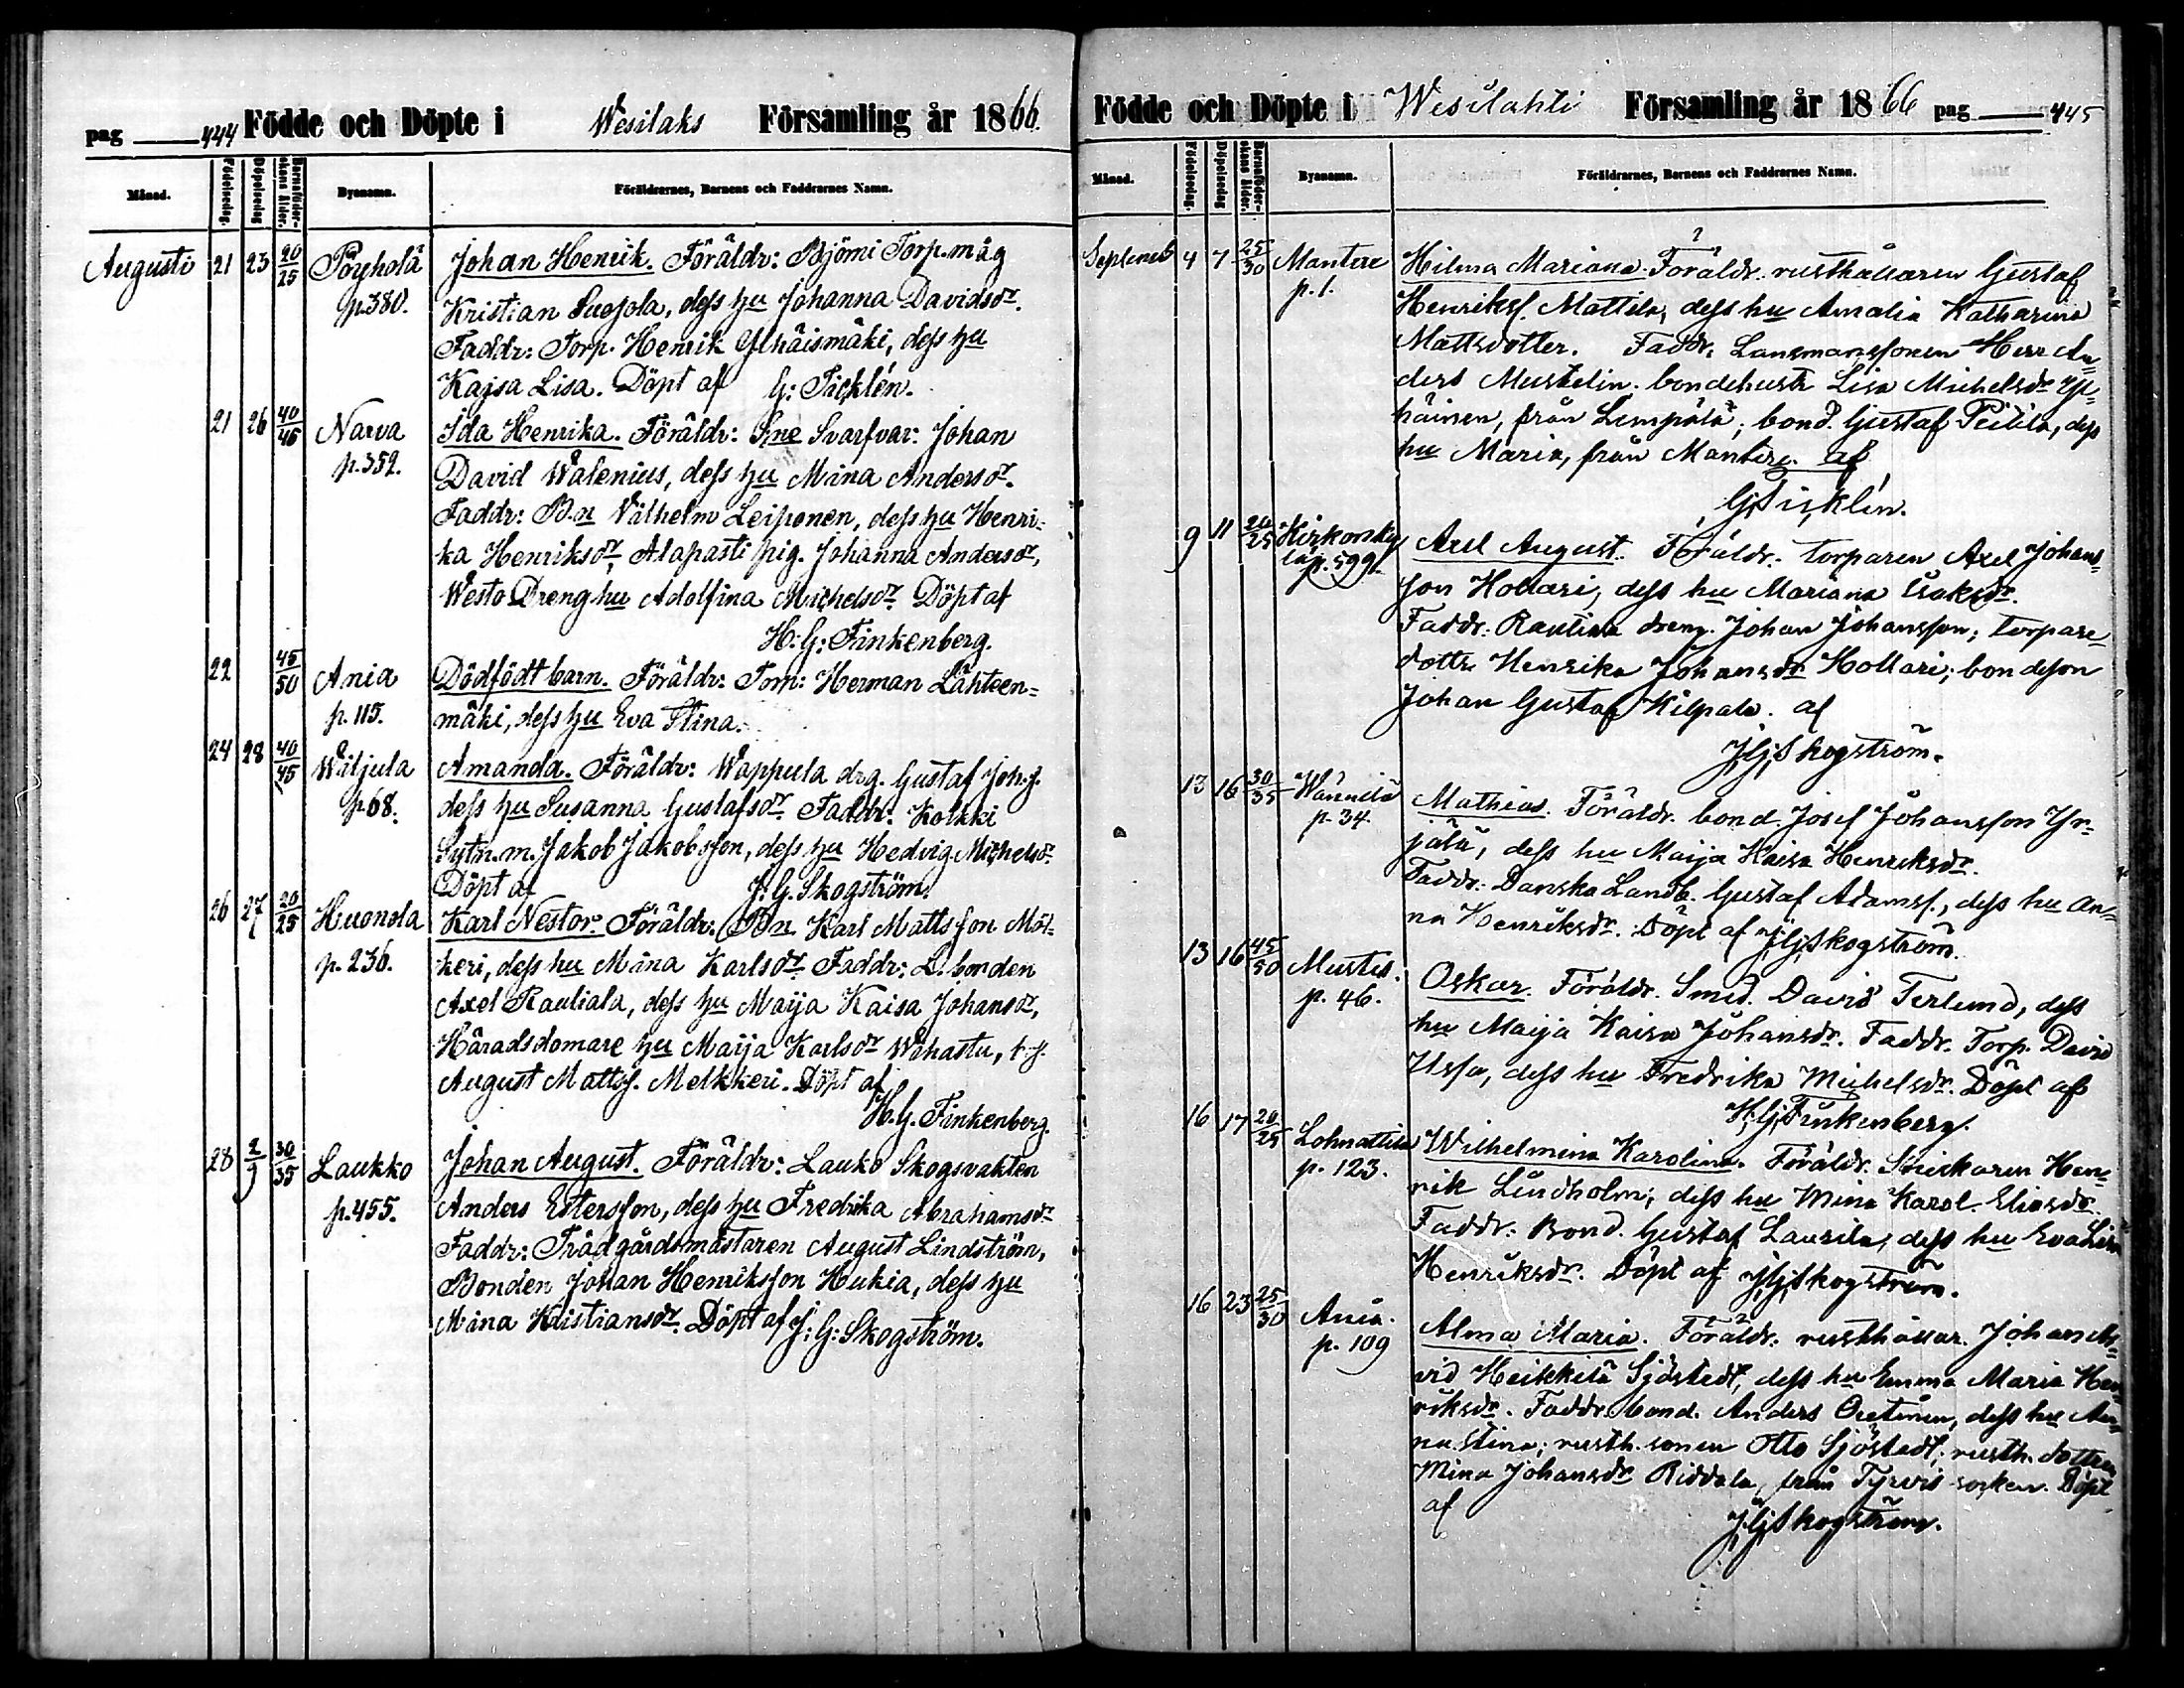 pag 444 Födde och Döpte i Wesilaks Församling år 1866.
Månad. Födelsedag. Döpelsedag Barnaföderskans ålder. Byanamn. Föräldrarnes, Barnens och Faddrarnes Namn.
Augusti 21 23 20/25 Pöyhölä Johan Henrik. Föräldr: Björni Torp. måg
p. 380. Kristian Suojola, dess hu Johanna Davidsdr.
Faddr: Torp. Henrik Ylhäismäki, dess hu
Kajsa Lisa. Döpt af G: Picklén.
21 26 40/45 Narva Ida Henrika. Föräldr: Svarfvar: Johan
p. 359. David Walenius, dess hu Mina Andersdr.
Faddr: B.n Vilhelm Leiponen, dess hu Henri-
ka Henriksdr, Alapasti pig. Johanna Andersdr,
Westo Dreng hu Adolfina Michelsdr. Döpt af
H: G: Finkenberg.
22 45/50 Ania Dödfödt barn. Föräldr: Torp: Herman Lähteen-
p. 115. mäki, dess hu Eva Stina.
24 28 40/45 Wäljula Amanda. Föräldr: Wappula drg. Gustaf Joh.s.
p. 68. dess hu Susanna Gustafsdr. Faddr: Kolkki
Sytn.m. Jakob Jakobsson, dess hu Hedvig Michelsdr
Döpt af J. G. Skogström.
26 27 20/25 Huonola Karl Nestor. Föräldr: Bn Karl Mattsson Möl-
p. 236. keri, dess hu Mina Karlsdr. Faddr: L. bonden
Axel Rautiala, dess hu Maija Kaisa Johansdr,
Häradsdomare hu Maija Karlsdr Wihastu,
August Matts. Melkkeri. Döpt af
H. G. Finkenberg.
28 2/9 30/35 Laukko Johan August. Föräldr: Lauko Skogsvakten
p. 455. Anders Estersson, dess hu Fredrika Abrahamsdr
Faddr: Trädgårdsmästaren August Lindström,
Bonden Johan Henriksson Hukia, dess hu
Mina Kristiansdr. Döpt af J: G: Skogström.
Födde och Döpte i Wesilahti Församling år 1866 pag 445
Månad. Födelsedag. Döpelsedag Barnaföderskans ålder. Byanamn. Föräldrarnes, Barnens och Faddrarnes Namn.
Septemb 4 7 25/30 Mantere Hilma Mariana. Föräldr. rusthållaren Gustaf
p. 1. Henrikss. Mattila, dess hu Amalia Katharina
Mattsdotter. Faddr. Lansmanssonen Herr An-
ders Mustelin. bondehustr Lisa Michelsdr Yli-
häinen, från Lempälä; bond. Gustaf Peitilä, dess
hu Maria, från Mantere. af
G. Picklén.
9 11 20/25 Axel August. Föräldr. torparen Axel Johans-
p. 599. son Hollari, dess hu Mariana Isaksdr.
Faddr: Rautiala dreng. Johan Johansson; torpare
dottr Henrika Johansdr Hollari; bondeson
Johan Gustaf Kilpala. af
J. G. Skogström.
13 16 30/35 Wännilä Mathias. Föräldr. bond. Josef Johansson Yr-
p. 34. jälä, dess hu Maija Kaisa Henriksdr.
Faddr: Danska Landb. Gustaf Adamss., dess hu An-
na Henriksdr. Döpt af J. G. Skogström.
13 16 45/50 Mustis. Oskar. Föräldr. Smed. David Terlund, dess
p. 46. hu Maija Kaisa Johansdr. Faddr. Torp. David
Ussa, dess hu Fredrika Michelsdr. Döpt af
H. G. Finkenberg.
16 17 20/25 Lohnattila Wilhelmina Karolina. Föräldr. Snickaren Hen-
p. 123. rik Lindholm; dess hu Mina Karol. Eliasdr.
Faddr: Bond. Gustaf Laurila, dess hu Eva Lisa
Henriksdr. Döpt af J. G. Skogström.
16 23 25/30 Ania. Alma Maria. Föräldr. rusthållar. Johan Ar-
p. 109 vid Heikkilä Sjöstedt, dess hu Emma Maria Hen-
riksdr. Faddr. bond. Anders Oretinen, dess hu An-
na Stina; rusth. sonen Otto Sjöstedt; rusth. dottren
Mina Johansdr Riddala, från Tyrvis socken. Döpt
af J. G. Skogström.